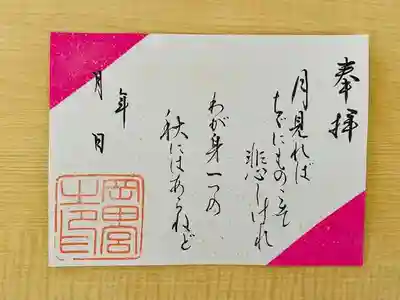 奉拝
月見れば
ちゞにものこそ
悲しけれ
わが身一つの
秋にはあらねど
年
月　日
岡田宮